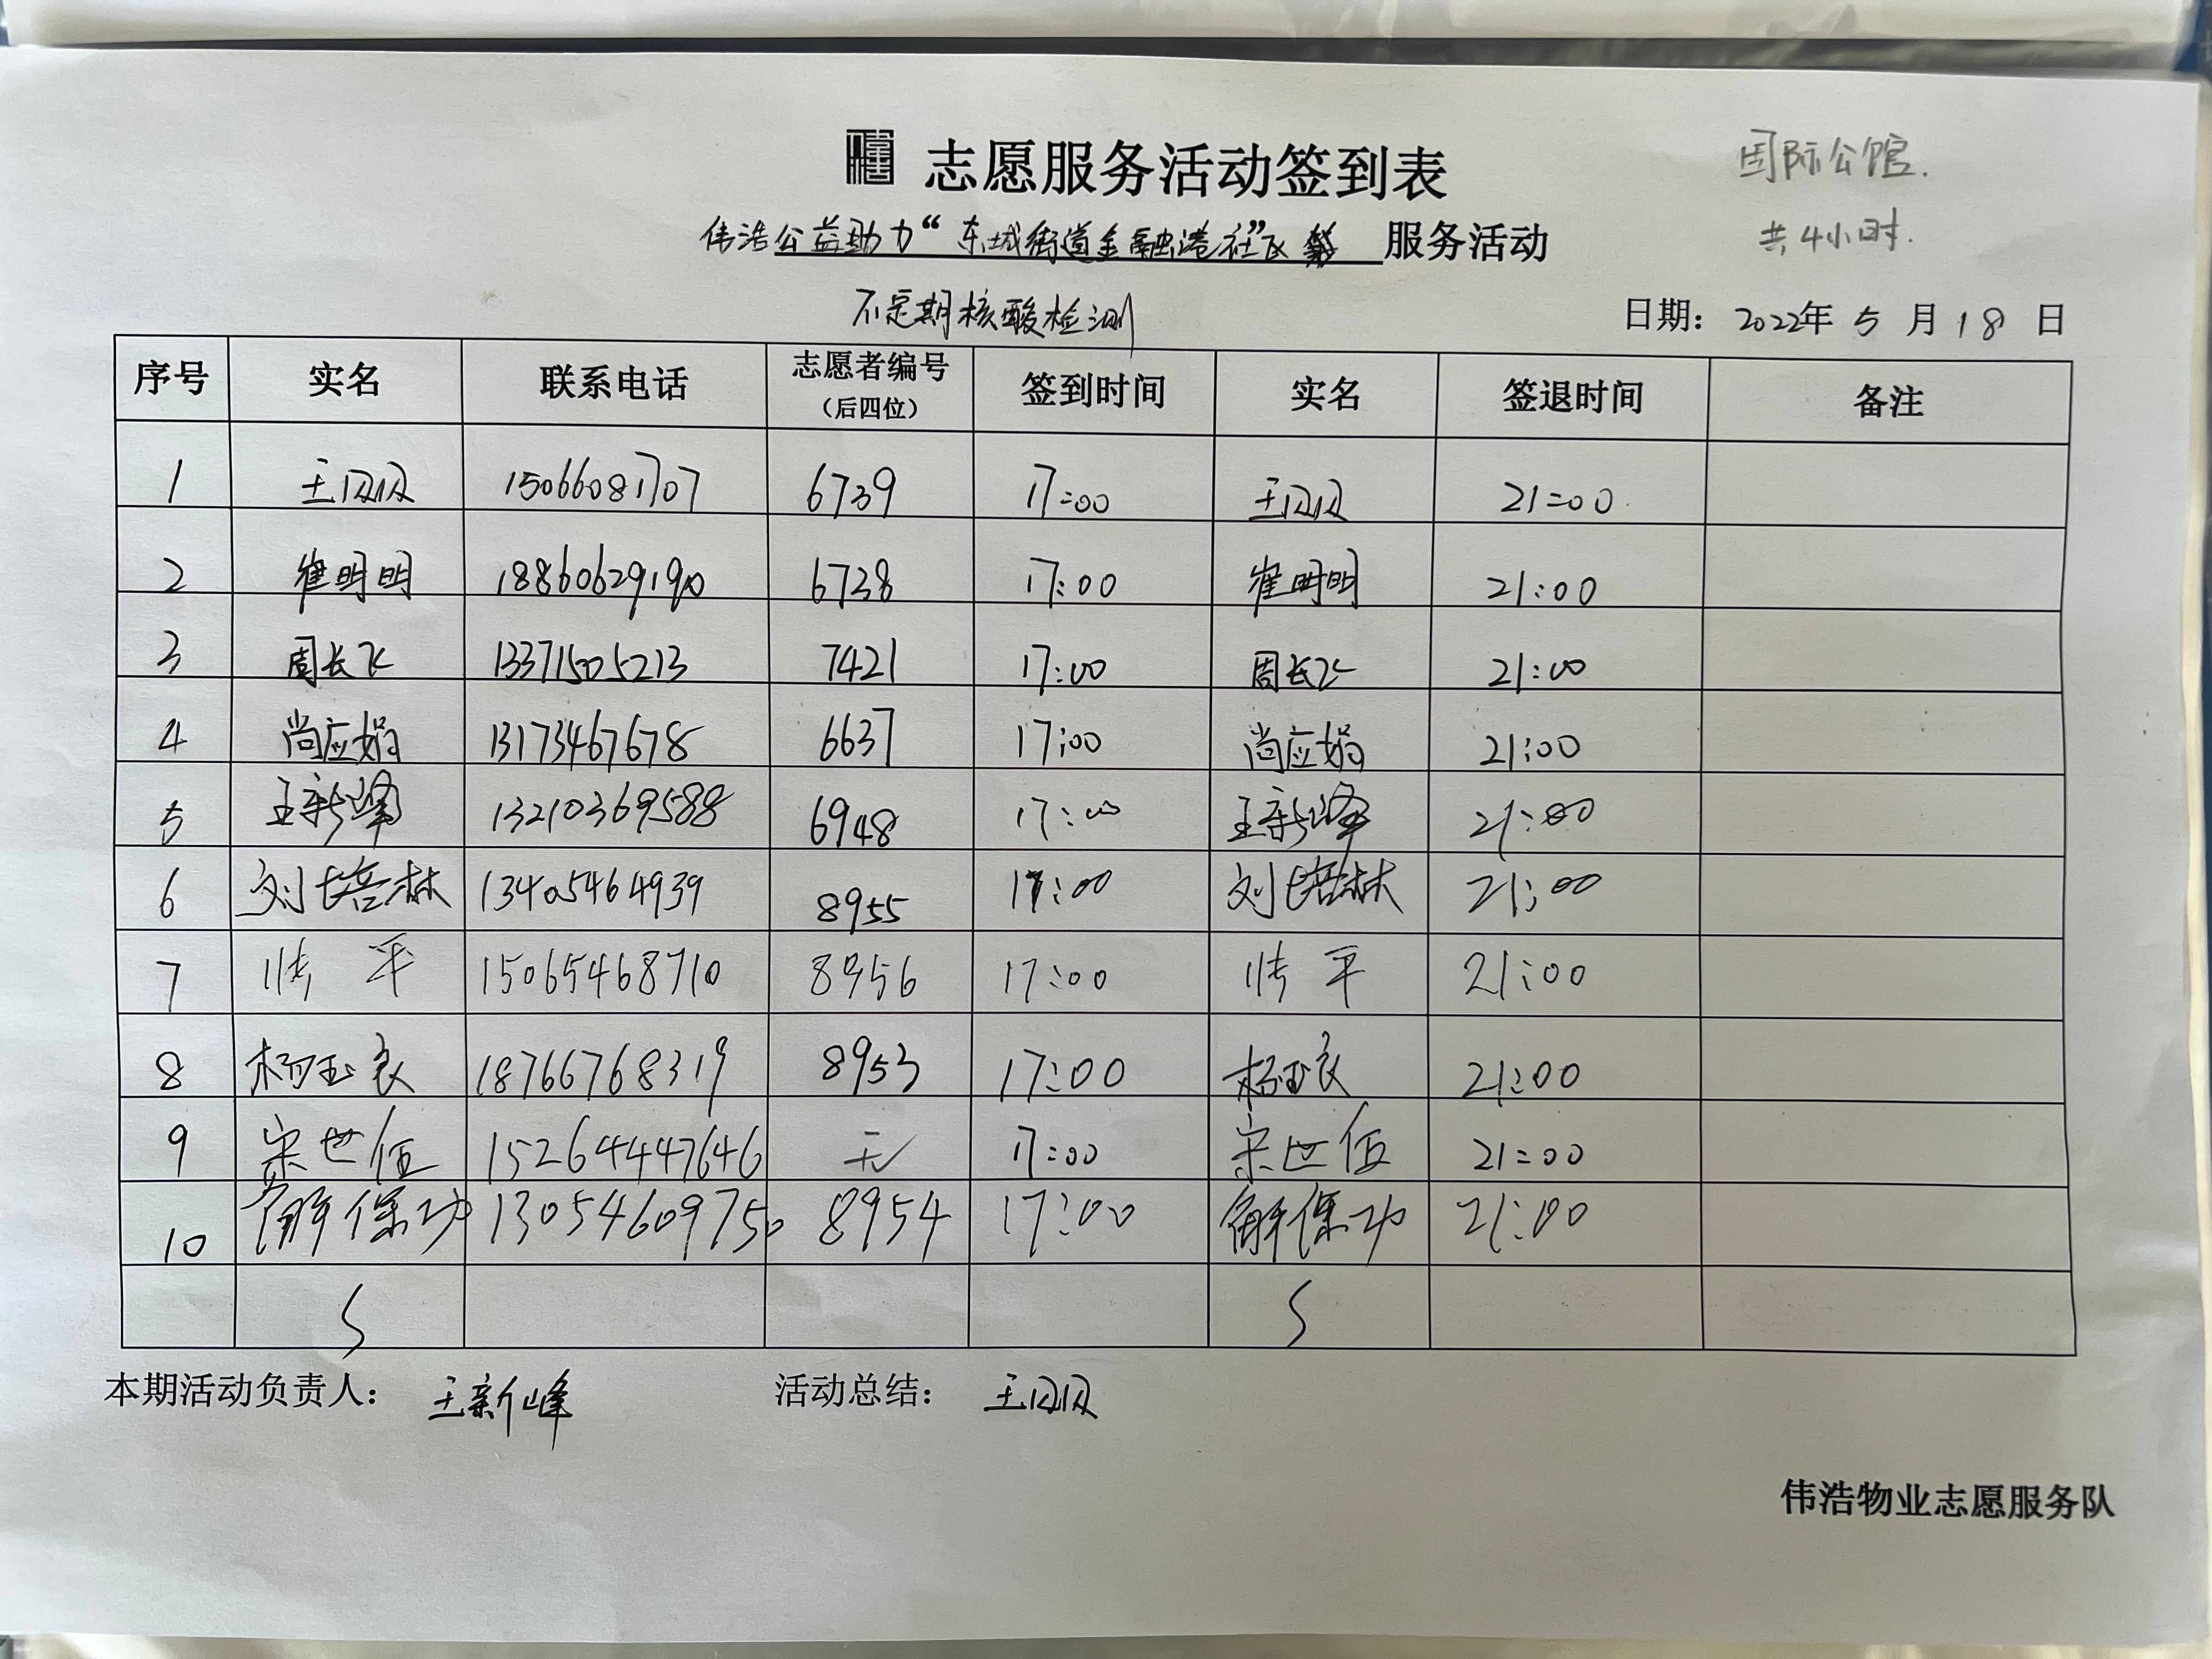 志愿服务活动签到表
国际公馆.
共4小时.
伟浩公益助力“东城街道金融港社”区 服务活动
不定期核酸检测
日期: 2022年 5 月 18 日
序号 实名 联系电话 志愿者编号(后四位) 签到时间 实名 签退时间 备注
1 王风风 15066081707 6739 17:00 王风风 21:00
2 崔明明 18860629190 6738 17:00 崔明明 21:00
3 周长飞 13371505213 7421 17:00 周长飞 21:00
4 尚应娟 13173467678 6637 17:00 尚应娟 21:00
5 王新峰 13210369588 6948 17:00 王新峰 21:00
6 刘培林 13405464939 8955 17:00 刘培林 21:00
7 平 15065468710 8956 17:00 平 21:00
8 杨玉良 18766768319 8953 17:00 杨玉良 21:00
9 宋世伍 15264447646 无 17:00 宋世伍 21:00
10 解保功 13054609750 8954 17:00 解保功 21:00
本期活动负责人: 王新峰 活动总结: 王风风
伟浩物业志愿服务队